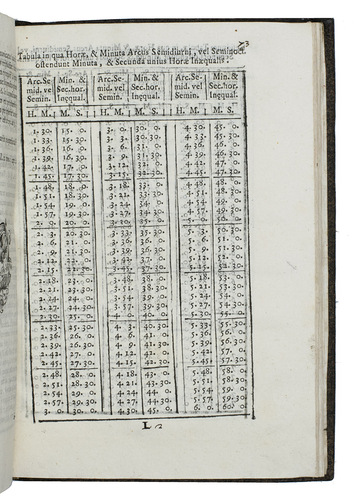 73
Tabula in qua Horæ, & Minuta Arcus Semidiurni, vel Seminoct.
ostendunt Minuta, & Secunda unius Horæ Inæqualis.
Arc. Se- Min. & Arc. Se- Min. & Arc. Se- Min. &
mid. vel Sec. hor. mid. vel Sec. hor. mid. vel Sec. hor.
Semin. Inęqual. Semin. Inęqual. Semin. Inęqual.
H. M. M. S. H. M. M. S. H. M. M. S.
1. 30. 15. 0. 3. 0. 30. 0. 4. 30. 45. 0.
1. 33. 15. 30. 3. 3. 30. 30. 4. 33. 45. 30.
1. 36. 16. 0. 3. 6. 31. 0. 4. 36. 46. 0.
1. 39. 16. 30. 3. 9. 31. 30. 4. 39. 46. 30.
1. 42. 17. 0. 3. 12. 32. 0. 4. 42. 47. 0.
1. 45. 17. 30. 3. 15. 32. 30. 4. 45. 47. 30.
1. 48. 18. 0. 3. 18. 33. 0. 4. 48. 48. 0.
1. 51. 18. 30. 3. 21. 33. 30. 4. 51. 48. 30.
1. 54. 19. 0. 3. 24. 34. 0. 4. 54. 49. 0.
1. 57. 19. 30. 3. 27. 34. 30. 4. 57. 49. 30.
2. 0. 20. 0. 3. 30. 35. 0. 5. 0. 50. 0.
2. 3. 20. 30. 3. 33. 35. 30. 5. 3. 50. 30.
2. 6. 21. 0. 3. 36. 36. 0. 5. 6. 51. 0.
2. 9. 21. 30. 3. 39. 36. 30. 5. 9. 51. 30.
2. 12. 22. 0. 3. 42. 37. 0. 5. 12. 52. 0.
2. 15. 22. 30. 3. 45. 37. 30. 5. 15. 52. 30.
2. 18. 23. 0. 3. 48. 38. 0. 5. 18. 53. 0.
2. 21. 23. 30. 3. 51. 38. 30. 5. 21. 53. 30.
2. 24. 24. 0. 3. 54. 39. 0. 5. 24. 54. 0.
2. 27. 24. 30. 3. 57. 39. 30. 5. 27. 54. 30.
2. 30. 25. 0. 4. 0. 40. 0. 5. 30. 55. 0.
2. 33. 25. 30. 4. 3. 40. 30. 5. 33. 55. 30.
2. 36. 26. 0. 4. 6. 41. 0. 5. 36. 56. 0.
2. 39. 26. 30. 4. 9. 41. 30. 5. 39. 56. 30.
2. 42. 27. 0. 4. 12. 42. 0. 5. 42. 57. 0.
2. 45. 27. 30. 4. 15. 42. 30. 5. 45. 57. 30.
2. 48. 28. 0. 4. 18. 43. 0. 5. 48. 58. 0.
2. 51. 28. 30. 4. 21. 43. 30. 5. 51. 58. 30.
2. 54. 29. 0. 4. 24. 44. 0. 5. 54. 59. 0.
2. 57. 29. 30. 4. 27. 44. 30. 5. 57. 59. 30.
3. 0. 30. 0. 4. 30. 45. 0. 6. 0. 60. 0.
L 2